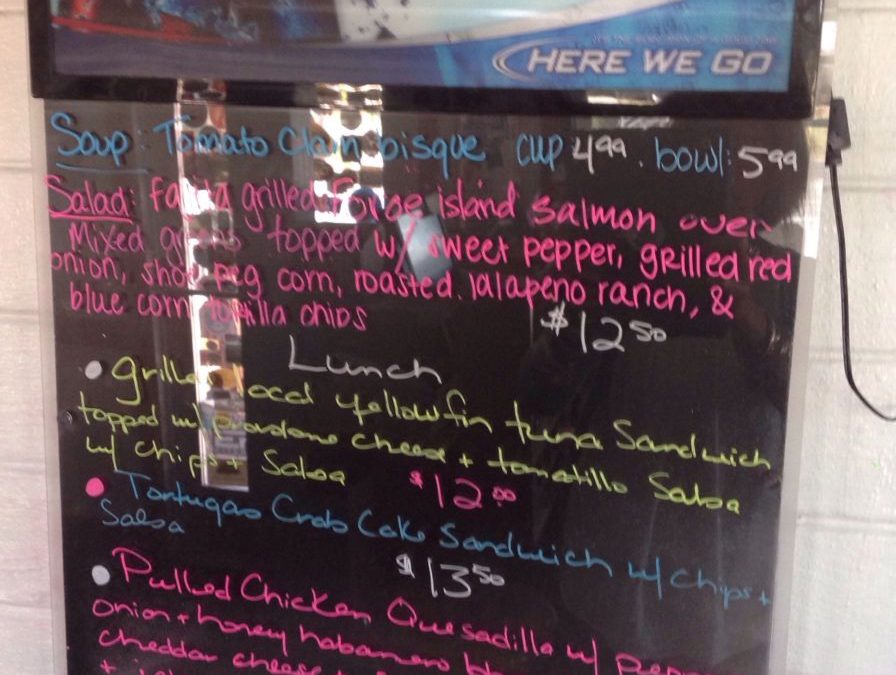 HERE WE GO
Soup: Tomato Clam bisque cup 4.99. bowl: 5.99
Salad: Fajita grilled Faroe island Salmon over
Mixed greens topped w/ sweet pepper, grilled red
onion, shoe peg corn, roasted jalapeno ranch, &
blue corn tortilla chips
$12.50
Lunch
• Grilled local yellowfin tuna Sandwich
topped w/ provolone cheese + tomatillo Salsa
w/ chips + Salsa $12.00
• Tortugas Crab Cake Sandwich w/ chips +
Salsa
$13.50
• Pulled Chicken Quesadilla w/
onion + honey habanero
cheddar cheese
+